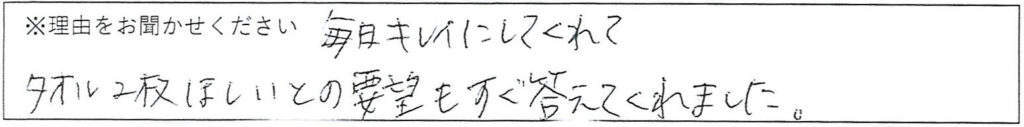 ※理由をお聞かせください 毎日キレイにしてくれて
タオル2枚ほしいとの要望もすぐ答えてくれました。